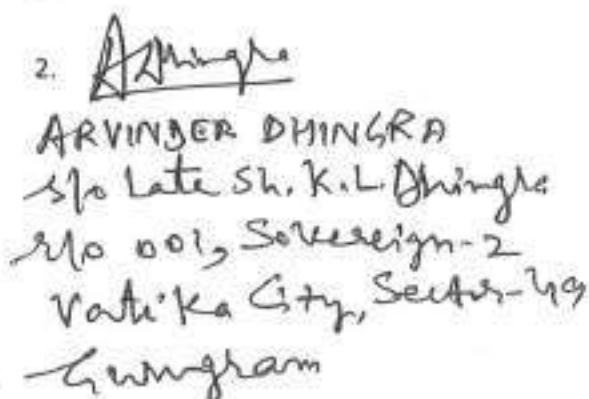 2. ADhingra
ARVINDER DHINGRA
s/o Late Sh. K.L. Dhingra
r/o 001, Sovereign-2
Vatika City, Sector-49
Gurugram